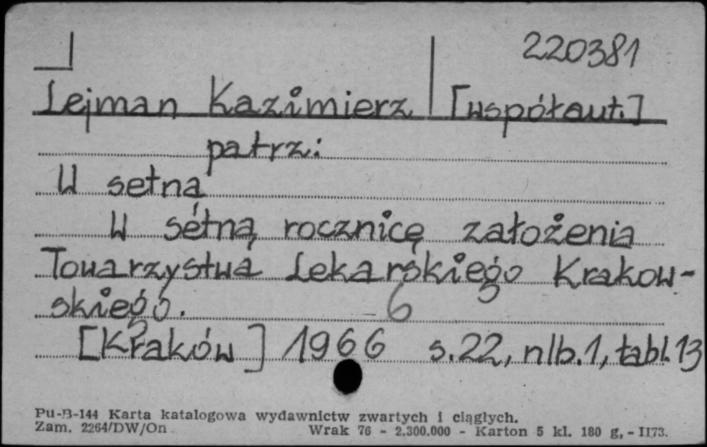 220381
Lejman Kazimierz [współaut.]
patrz:
W setną
W setną rocznicę założenia
Towarzystwa Lekarskiego Krakow-
skiego. 6
[Kraków] 1966 s.22, nlb.1, tabl.13
Pu-B-144 Karta katalogowa wydawnictw zwartych i ciągłych.
Zam. 2264/DW/On Wrak 76 - 2.300.000 - Karton 5 kl. 180 g, - II73.